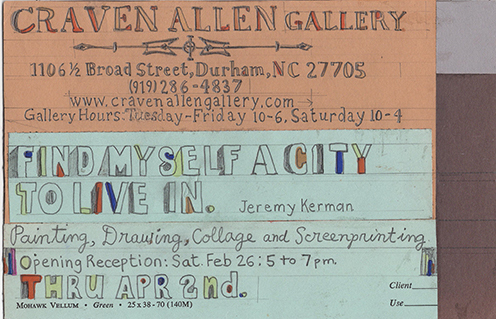 CRAVEN ALLEN GALLERY
1106½ Broad Street, Durham, NC 27705
(919) 286-4837
www.cravenallengallery.com
Gallery Hours: Tuesday-Friday 10-6, Saturday 10-4
FIND MYSELF A CITY
TO LIVE IN. Jeremy Kerman
Painting, Drawing, Collage and Screenprinting
Opening Reception: Sat. Feb 26: 5 to 7 pm.
THRU APR 2nd.
Client
MOHAWK VELLUM • Green • 25 x 38 - 70 (140M)
Use